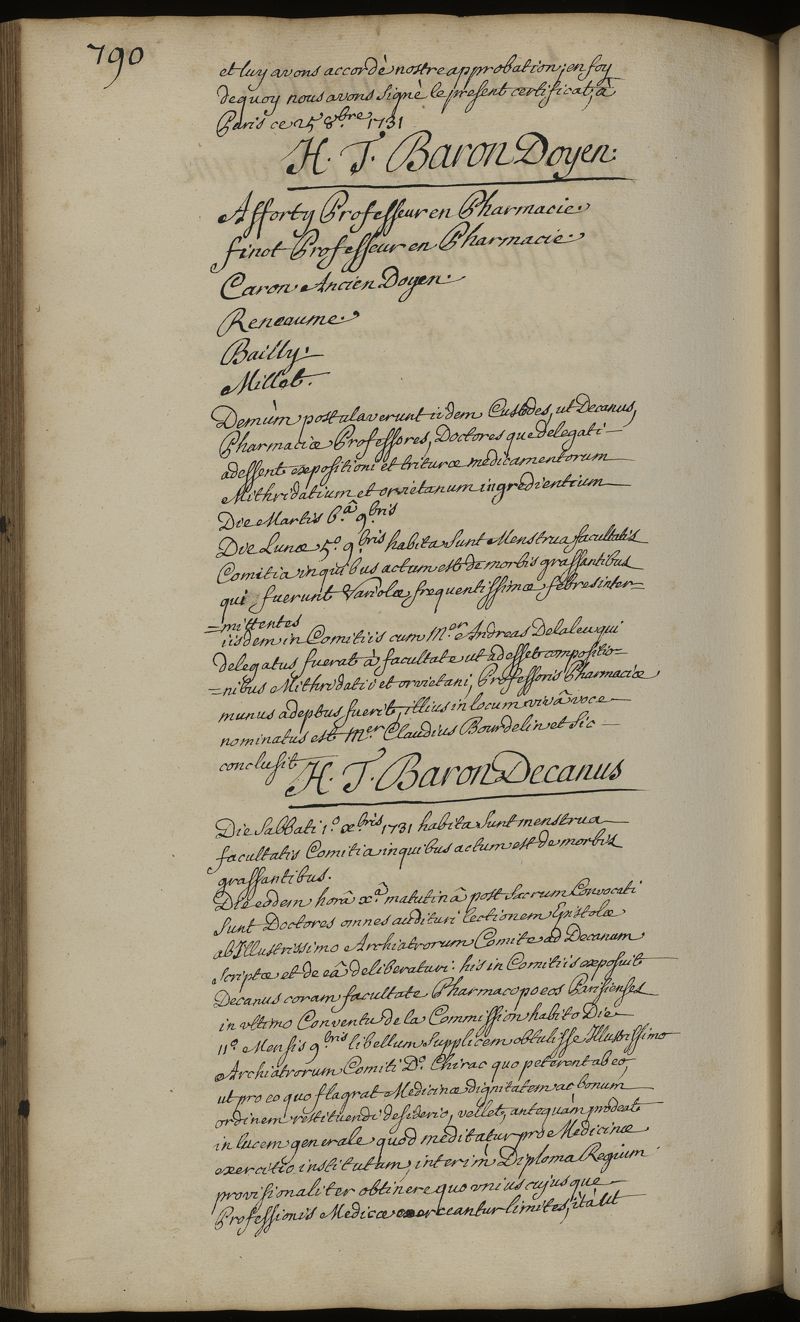 790
et luy avons accordé nostre approbation, en foy
de quoy nous avons signé le present certificat, à
Paris ce 25 8.bre 1731
H. T. Baron Doyen.
Afforty Professeur en Pharmacie.
finot Professeur en Pharmacie.
Caron. Ancien Doyen.
Reneaume.
Bailly.
Millet.
Demùm postulaverunt iidem Custodes, ut Decanus,
Pharmaciæ Professores, Doctores que delegati
adessent expositioni et trituræ medicamentorum
Mithridatium et orvietanum ingredientium
Die Martis 6.â 9.bris
Die Lunæ 5.o 9.bris habita sunt Menstrua facultatis
Comitia in quibus actum est de morbis grassantibus
qui fuerunt Variolæ frequentissimæ febres inter=
=mittentes
iisdem in Comitiis cum M.er Andreas Delaleu qui
delegatus fuerat à facultate ut adesset compositio=
=nibus Mithridatii et orvietani, Professoris Pharmaciæ
munus adeptus fuerit, illius in locum vivâ voce
nominatus est M.er Claudius Bourdelin et sic
conclusit
H. T. Baron Decanus
Die Sabbati 1.o x.bris 1731 habita sunt menstrua
facultatis Comitia in quibus actum est de morbis
grassantibus.
Die eodem horâ x.â matutinâ post sacrum Convocati
sunt Doctores omnes audituri lectionem Epistolæ
ab Illustrissimo Archiatrorum Comite ad Decanum
scriptæ et de eâ deliberaturi: his in Comitiis exposuit
Decanus coram facultate Pharmacopoeos Parisienses
in ultimo Conventu de la Commission habito Die
11.o Mensis 9.bris libellum supplicem obtulisse Illustissimo
Archiatrorum Comiti D.o Chirac quo peterent ab eo,
ut pro eo quo flagrat Medicinæ dignitatem ac bonum
ordinem restituendi desiderio, vellet, antequàm prodeat
in lucem generale quod meditatur pro Medicinæ
exercitio institutum, interim Diploma Regium
provisionaliter obtinere quo unius cujusque
Professionis Medicæ coerceantur limites, ità ut